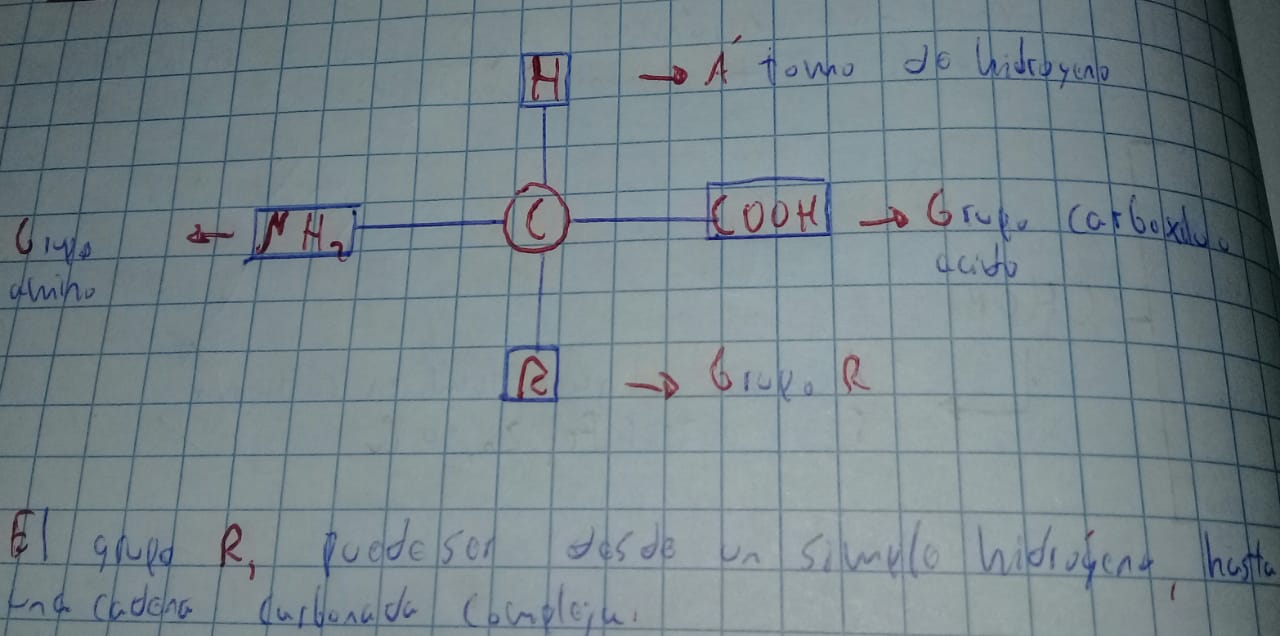 H → Á tomo de hidrógeno
Grupo ← NH₂ C COOH → Grupo Carboxilo
amino ácido
R → Grupo R
El grupo R, puede ser desde un simple hidrógeno, hasta
una cadena carbonada compleja.